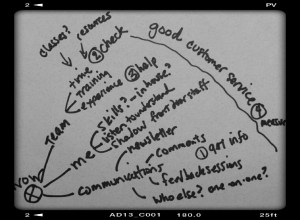 2
PV
classes? resources
② check
good customer service
④ measure
time
training
experience
③ help
team
skills? - in house?
listen to understand
shadow from other staff
me
newsletter
communications
comments
① get info
feedback sessions
who else? one-on-one?
now
2 AD13_C001 190.0 25ft